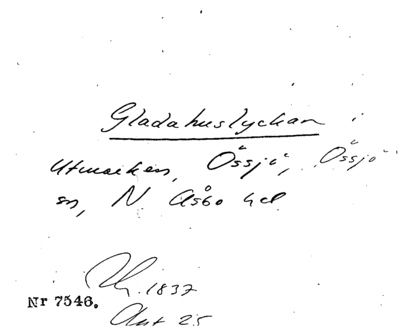 Gladahuslyckan i
utmarken, Össjö, Össjö
sn, N Åsbo hd
1837
Nr 7546.
Akt 25